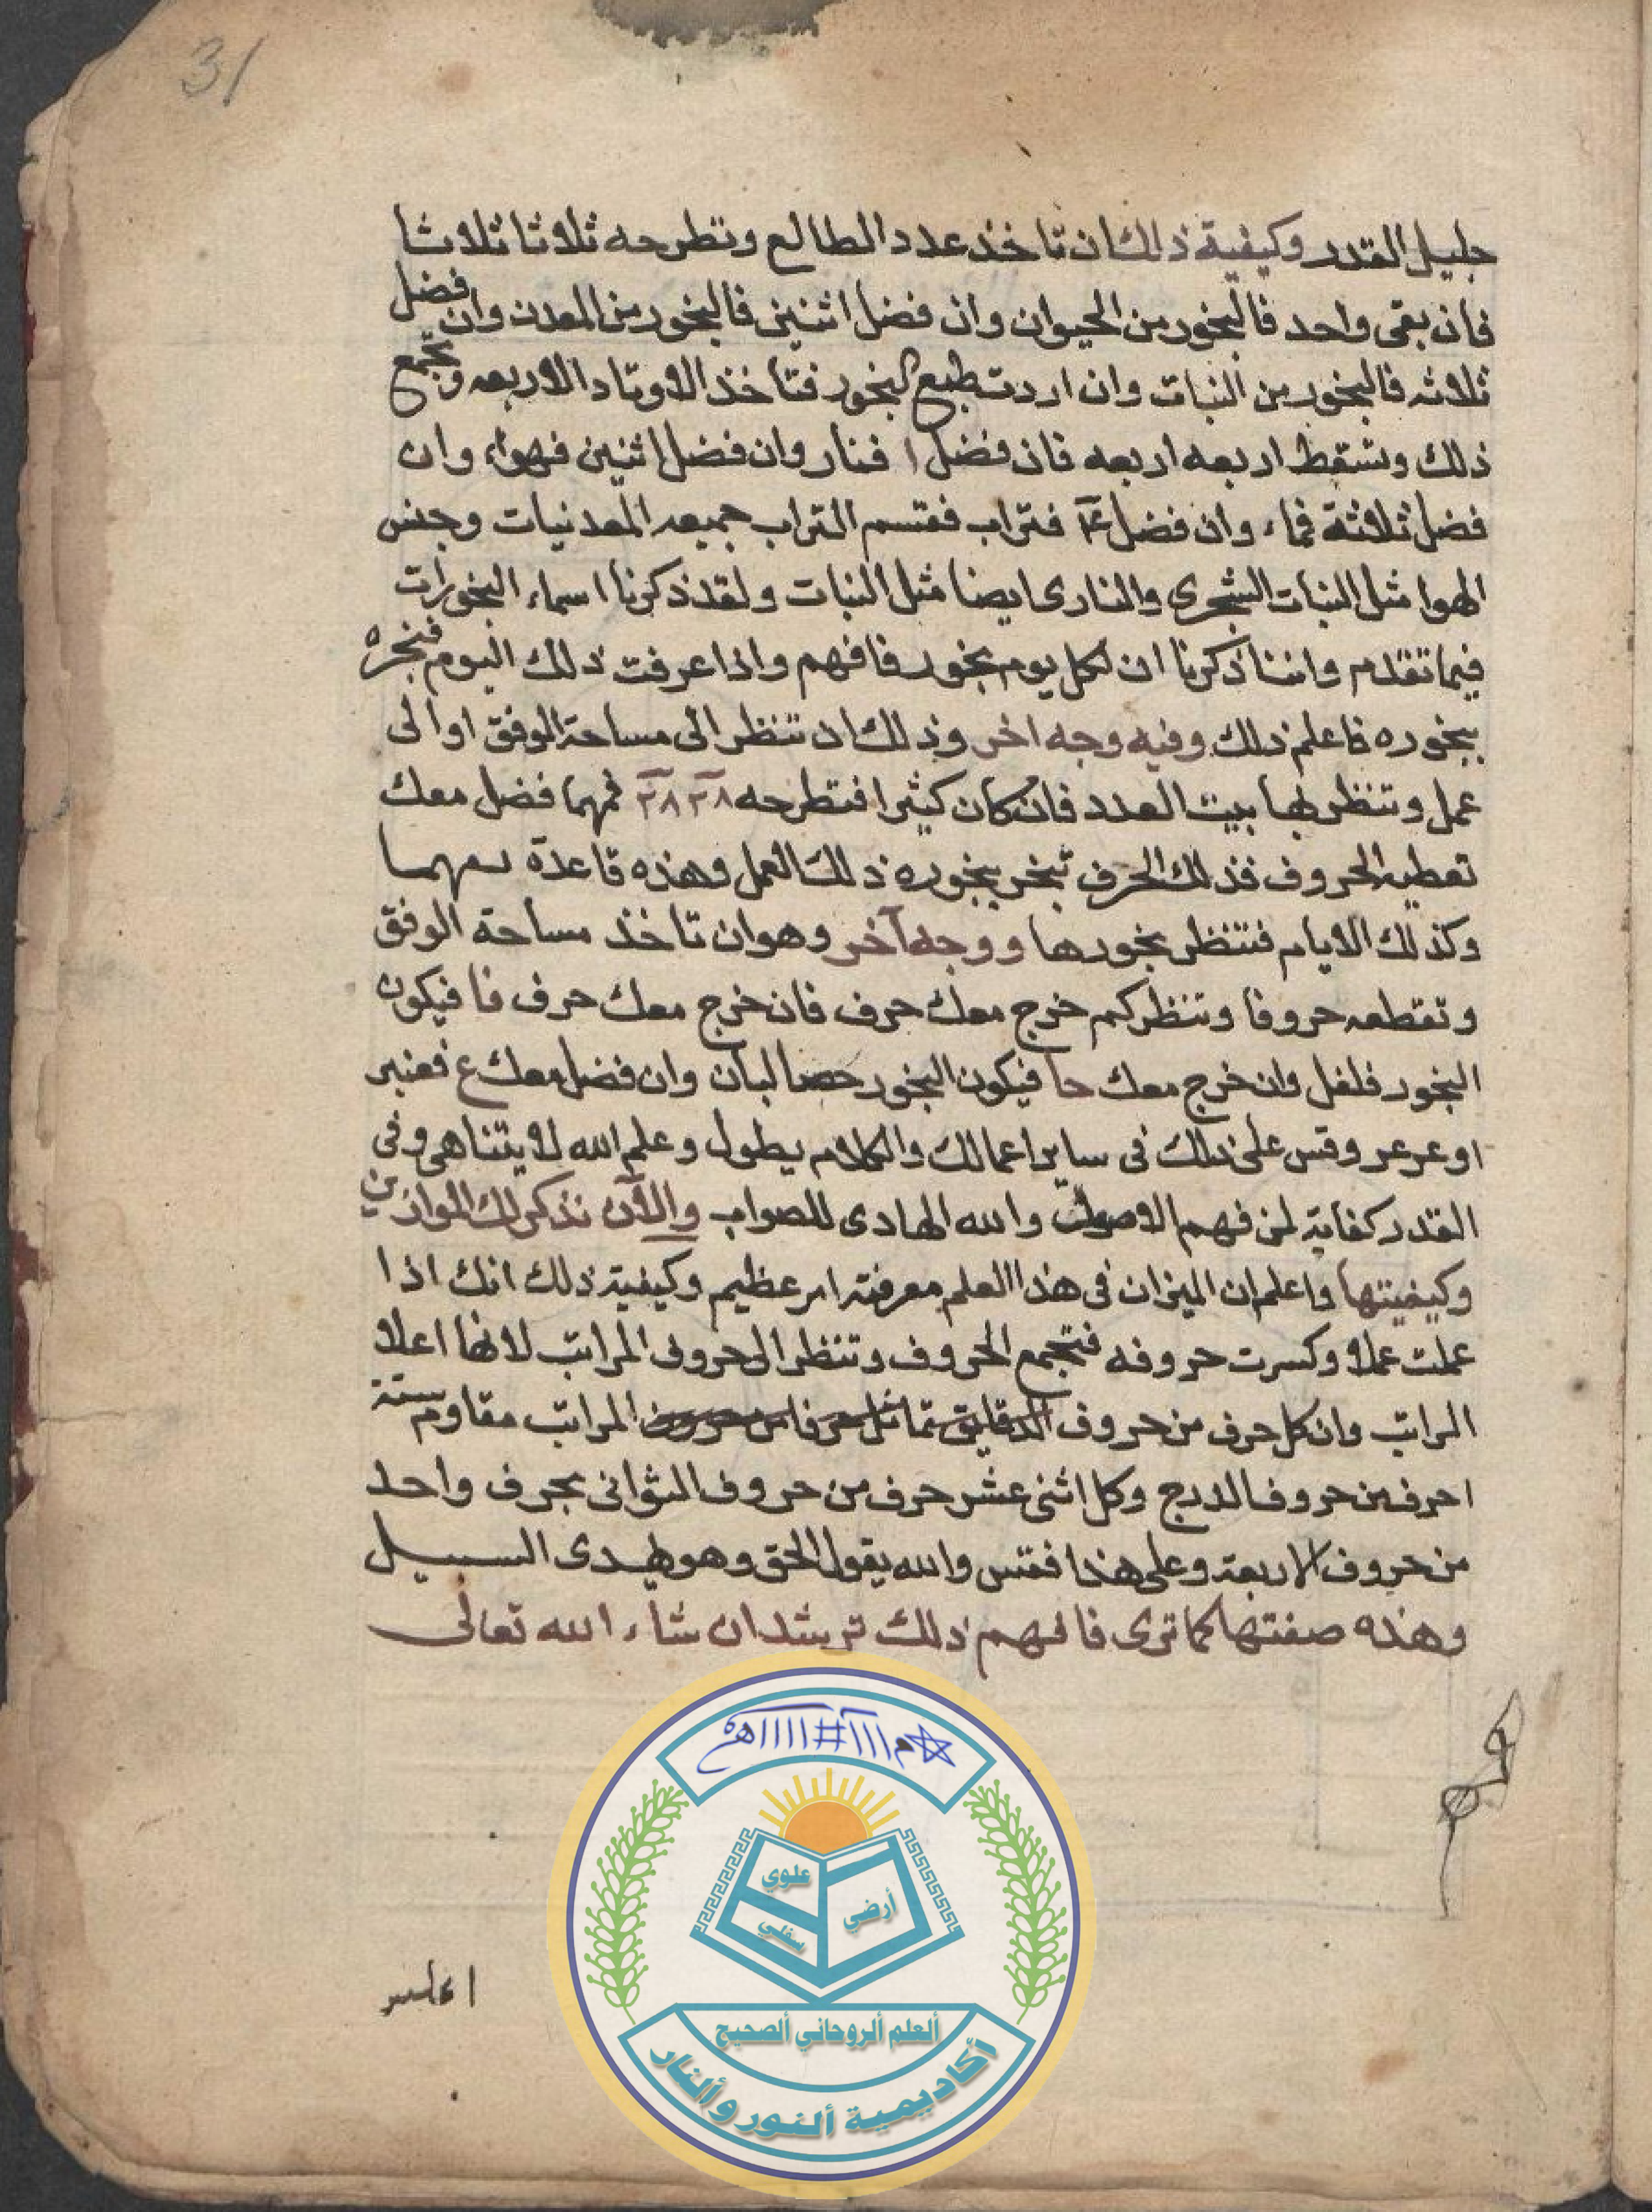 31
جليل القدر وكيفية ذلك ان تاخذ عدد الطالع وتطرحه ثلاثا ثلاثا
فان بقى واحد فالبخور من الحيوان وان فضل اثنين فالبخور من المعدن وان فضل
ثلاثه فالبخور من النبات وان اردت طبع البخور فتاخذ الاوتاد الاربعه وتجمع
ذلك وتسقط اربعه اربعه فان فضل ا فنار وان فضل اثنين فهواء وان
فضل ثلاثة فماء وان فضل ٤ فتراب فقسم التراب جميعه المعدنيات وجنس
الهوا مثل النبات الشجرى والنارى ايضا مثل النبات ولقد ذكرنا اسماء البخورات
فيما تقدم واننا ذكرنا ان لكل يوم بخور فافهم واذا عرفت ذلك اليوم فبخره
ببخوره فاعلم ذلك وفيه وجه اخر وذلك ان تنظر الى مساحة الوفق او الى
عمل وتنظر لها بيت العدد فان كان كثيرا فتطرحه ٢٨ ٢٨ فمهما فضل معك
تعطيه الحروف فذلك الحرف تبخر ببخوره ذلك العمل وهذه قاعدة
وكذلك الايام فتنظر بخورها ووجه آخر وهو ان تاخذ مساحة الوفق
وتقطعه حروفا وتنظر كم خرج معك حرف فان خرج معك حرف فا فيكون
البخور فلفل وان خرج معك حا فيكون البخور حصا لبان وان فضل معك ع فعنبر
او عرعر وقس على ذلك فى ساير اعمالك والكلام يطول وعلم الله لا يتناهى وفى
القدر كفاية لمن فهم الاصول والله الهادى للصواب والآن نذكر لك الموازين
وكيفيتها واعلم ان الميزان فى هذا العلم معرفته امر عظيم وكيفية ذلك انك اذا
عملت عملا وكسرت حروفه فتجمع الحروف وتنظر الى حروف المراتب لانها اعلا
المراتب وان كل حرف من حروف المراتب مقاوم ستة
احرف من حروف الدرج وكل اثنى عشر حرف من حروف الثوانى بحرف واحد
من حروف الاربعة وعلى هذا فقس والله يقول الحق وهو يهدى السبيل
وهذه صفتها كما ترى فافهم ذلك ترشد ان شاء الله تعالى
علوي
أرضي
سفلي
ألعلم ألروحاني ألصحيح
أكاديمية ألنور وألنار